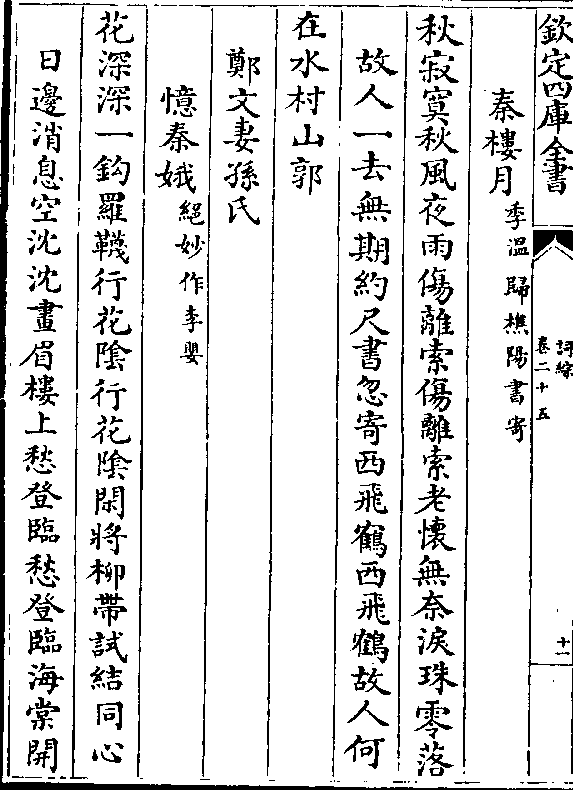 欽定四庫全書
詞綜
卷二十五
十一
秦樓月季溫歸樵陽書寄
秋寂寞秋風夜雨傷離索傷離索老懷無奈淚珠零落
故人一去無期約尺書忽寄西飛鶴西飛鶴故人何
在水村山郭
鄭文妻孫氏
憶秦娥絕妙作李嬰
花深深一鈎羅韈行花陰行花陰閑將柳帶試結同心
日邊消息空沈沈畫眉樓上愁登臨愁登臨海棠開